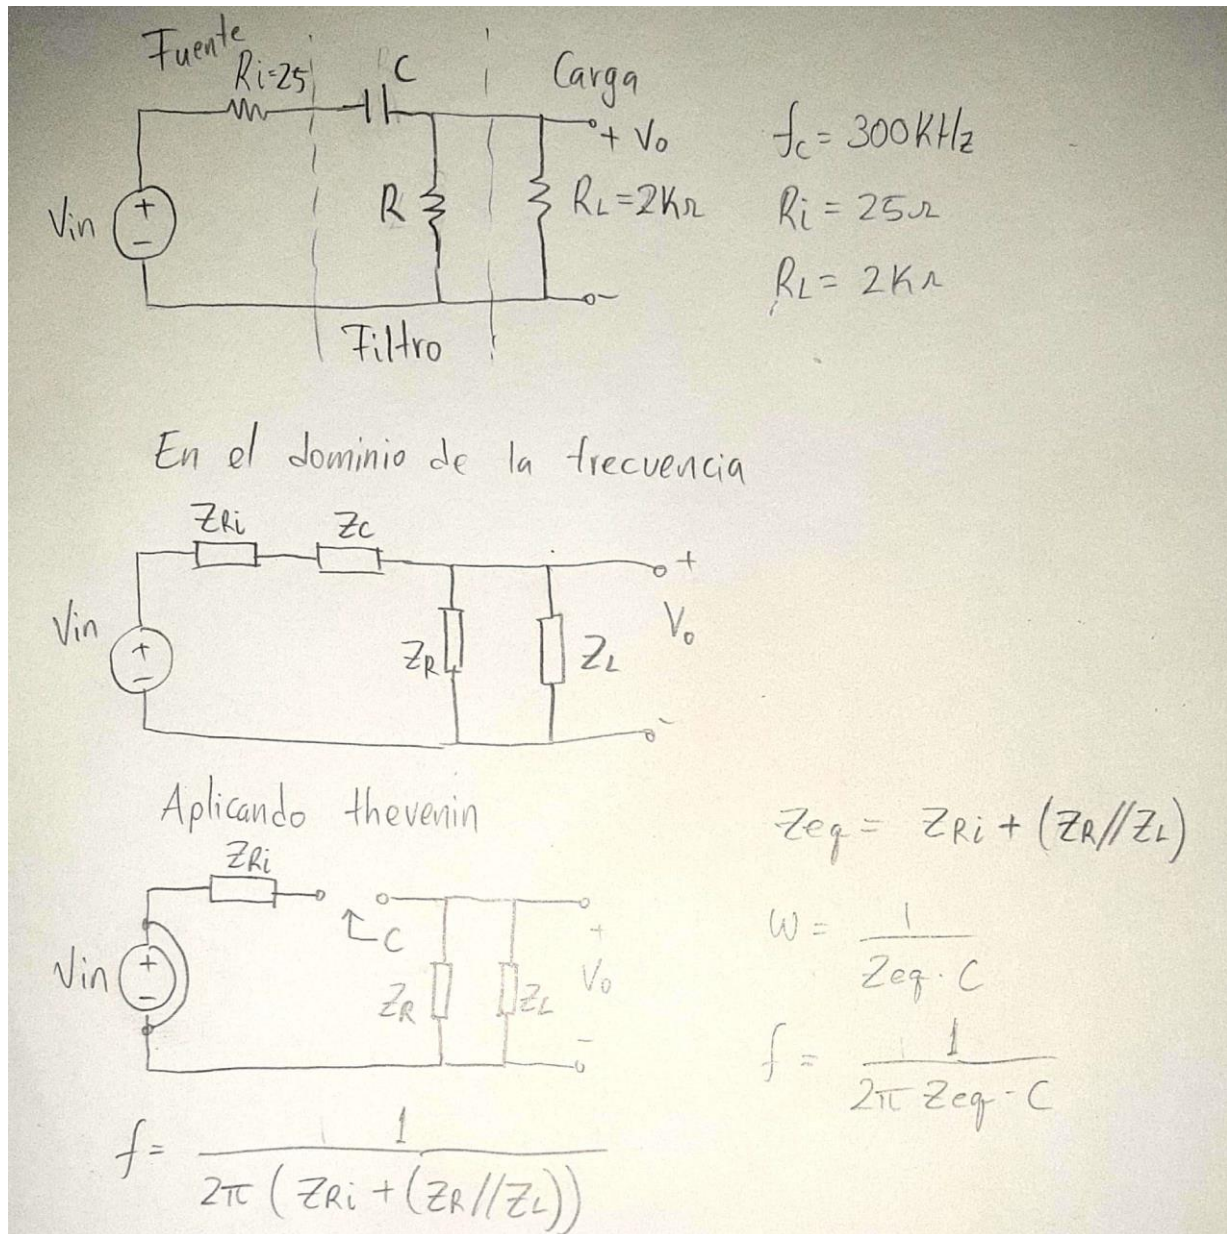 Fuente
Ri=25
C
Carga
Vin
+
-
R
+ Vo
RL=2KΩ
-
Filtro
fc= 300KHz
Ri = 25Ω
RL= 2KΩ
En el dominio de la frecuencia
ZRi
Zc
Vin
+
-
ZR
ZL
+
Vo
-
Aplicando thevenin
ZRi
C
Vin
+
-
ZR
ZL
+
Vo
-
Zeq = ZRi + (ZR//ZL)
W = 1
Zeq · C
f = 1
2π Zeq · C
f= 1
2π (ZRi + (ZR//ZL))